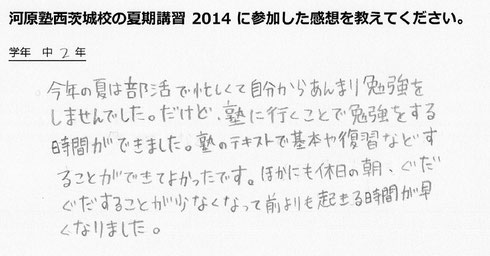 河原塾西茨城校の夏期講習 2014 に参加した感想を教えてください。
学年 中 2 年
今年の夏は部活で忙しくて自分からあんまり勉強を
しませんでした。だけど、塾に行くことで勉強をする
時間ができました。塾のテキストで基本や復習などす
ることができてよかったです。ほかにも休日の朝、ぐだ
ぐだすることが少なくなって前よりも起きる時間が早
くなりました。